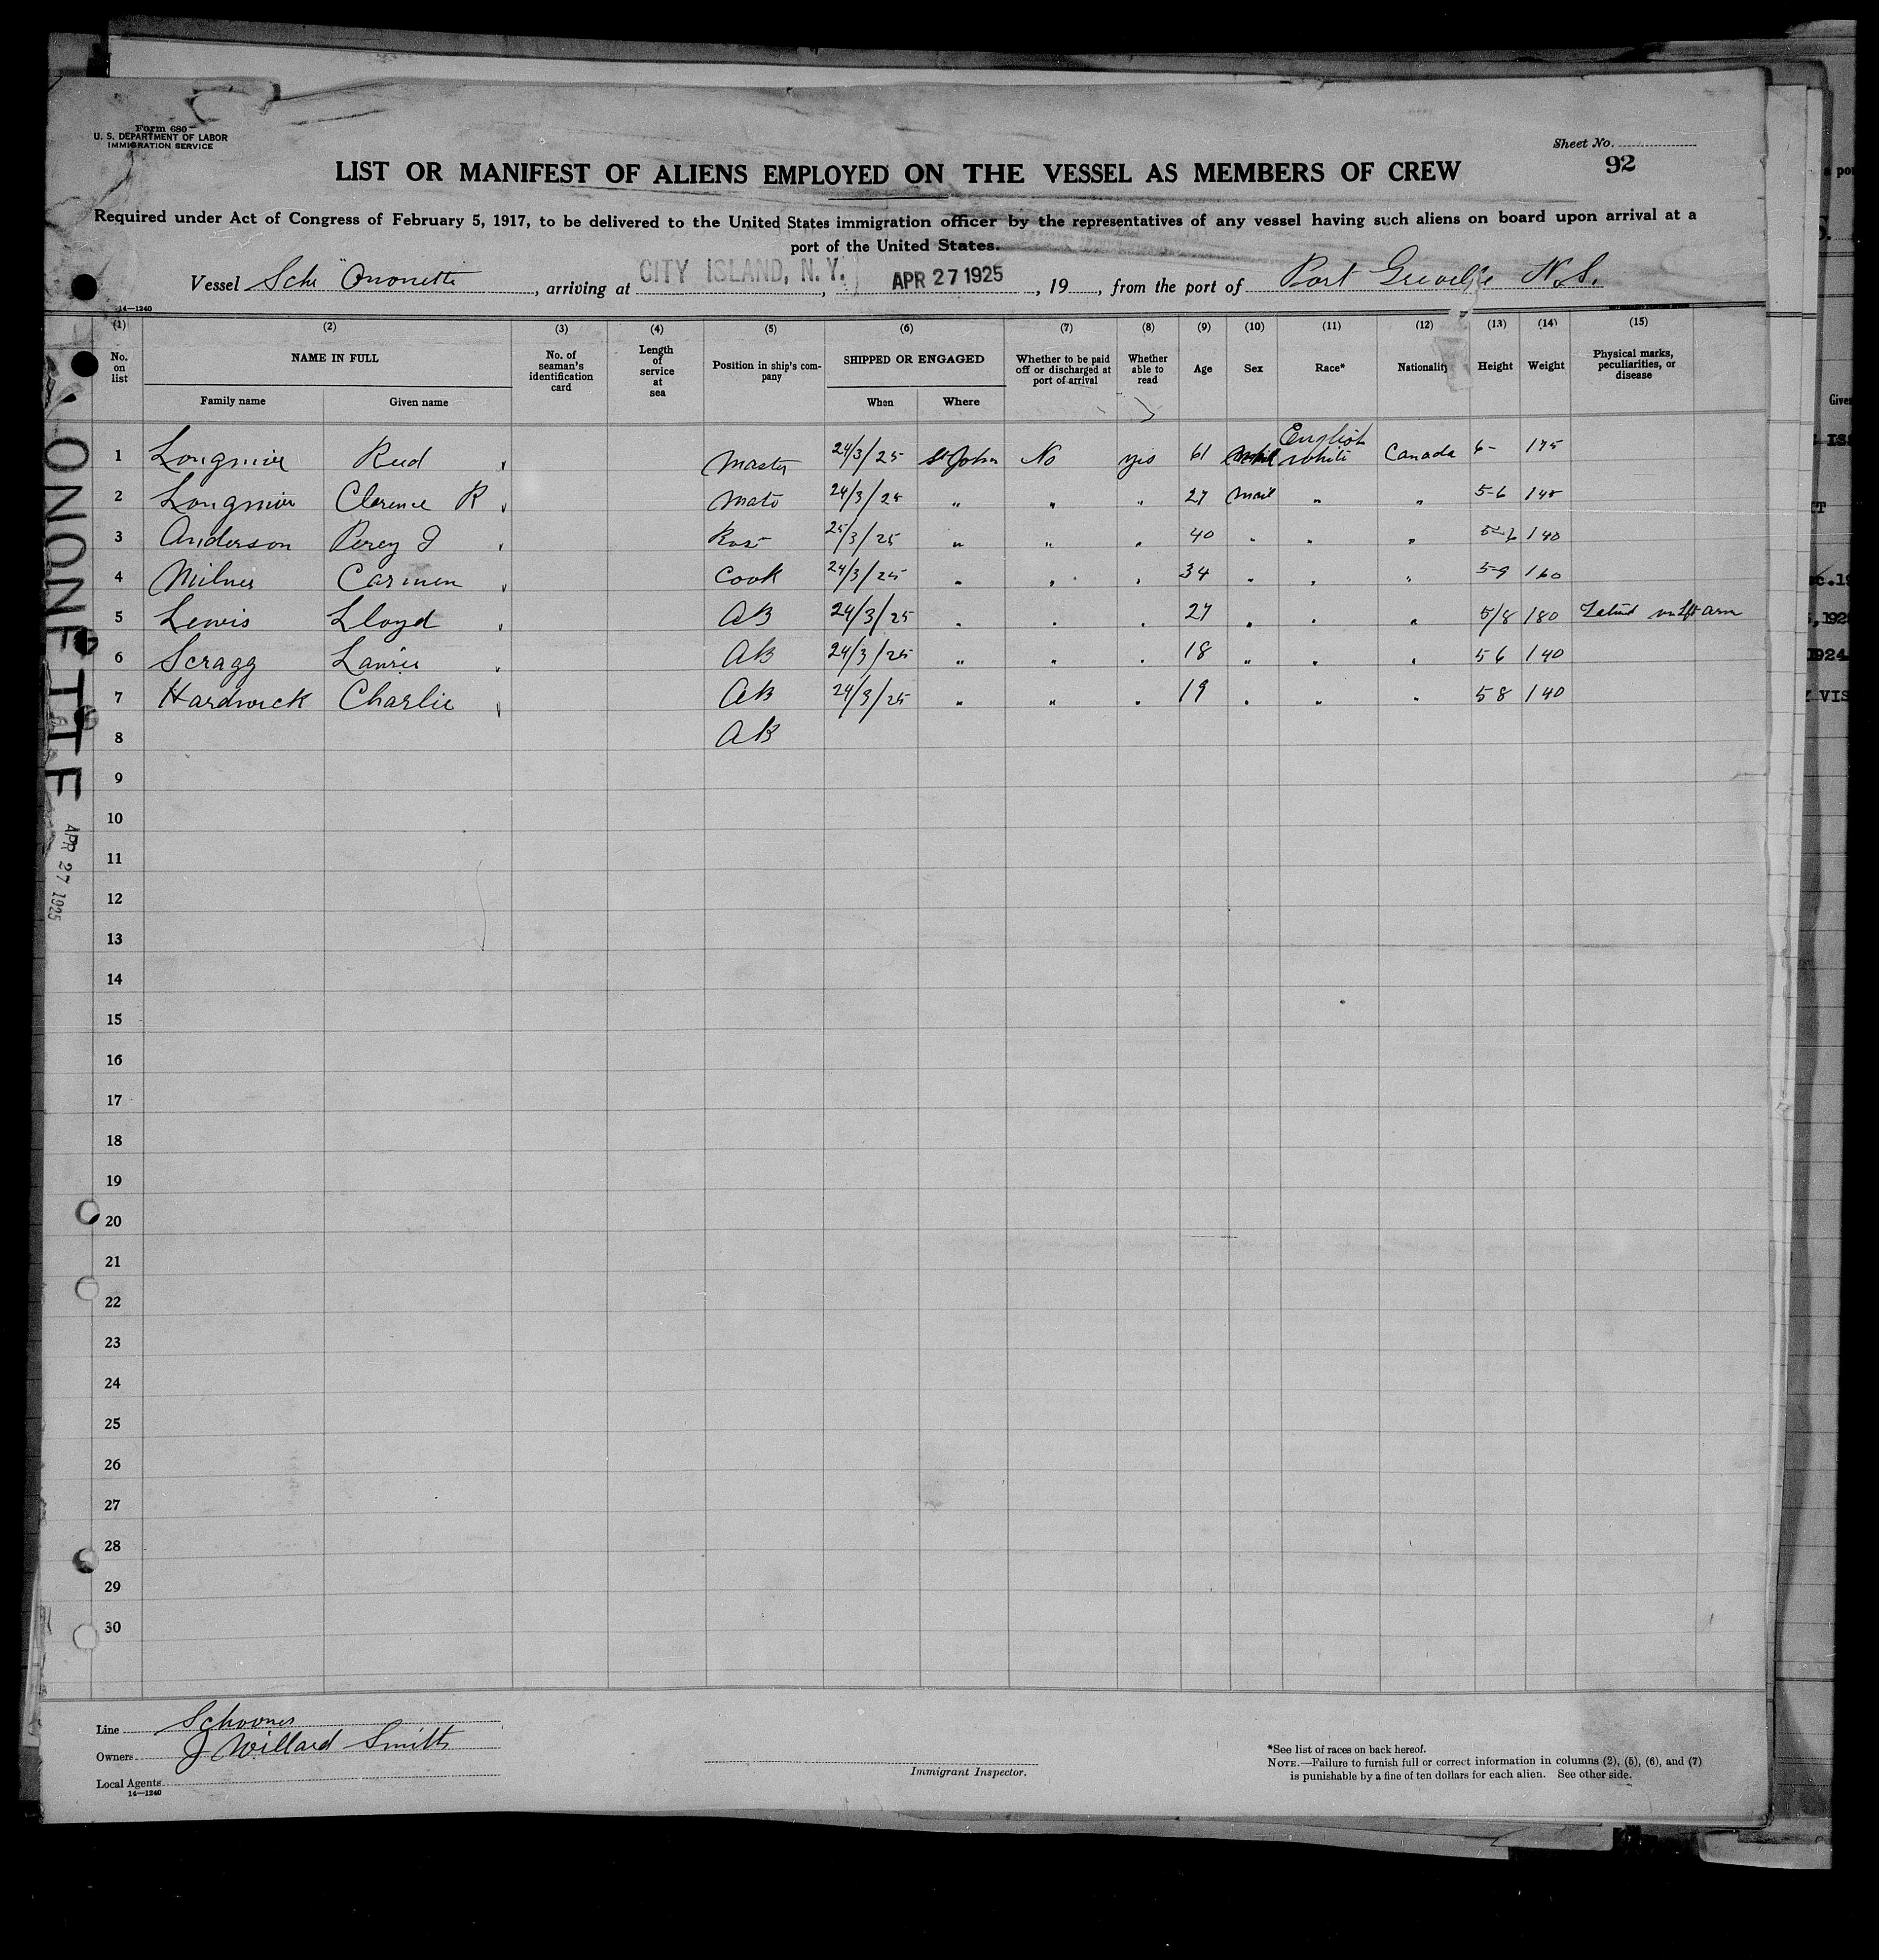 Form 680
U. S. DEPARTMENT OF LABOR
IMMIGRATION SERVICE
Sheet No.
92
LIST OR MANIFEST OF ALIENS EMPLOYED ON THE VESSEL AS MEMBERS OF CREW
Required under Act of Congress of February 5, 1917, to be delivered to the United States immigration officer by the representatives of any vessel having such aliens on board upon arrival at a
port of the United States.
Vessel Sch "Ononette, arriving at CITY ISLAND, N. Y., APR 27 1925, 19, from the port of Port Greville N.S.
14—1240
(1) (2) (3) (4) (5) (6) (7) (8) (9) (10) (11) (12) (13) (14) (15)
No. on list NAME IN FULL No. of seaman's identification card Length of service at sea Position in ship's company SHIPPED OR ENGAGED Whether to be paid off or discharged at port of arrival Whether able to read Age Sex Race* Nationality Height Weight Physical marks, peculiarities, or disease
Family name Given name When Where
1 Longmire Reed Master 24/3/25 St John No yes 61 English White Canada 6- 175
2 Longmire Clarence R Mate 24/3/25 " " " 27 Mail " " 5-6 145
3 Anderson Percy 25/3/25 " " " 40 " " " 5-6 140
4 Milner Carmen Cook 24/3/25 " " " 34 " " " 5-9 160
5 Lewis Lloyd AB 24/3/25 " " " 27 " " " 5/8 180 on Lft arm
6 Scragg Laurie AB 24/3/25 " " " 18 " " " 5 6 140
7 Hardwick Charlie AB 24/3/25 " " " 19 " " " 5 8 140
8 AB
9
10
11
12
13
14
15
16
17
18
19
20
21
22
23
24
25
26
27
28
29
30
ONONETTE
APR 27 1925
Line Schooner
Owners J Willard Smith
Local Agents
14—1240
Immigrant Inspector.
*See list of races on back hereof.
NOTE.—Failure to furnish full or correct information in columns (2), (5), (6), and (7)
is punishable by a fine of ten dollars for each alien. See other side.